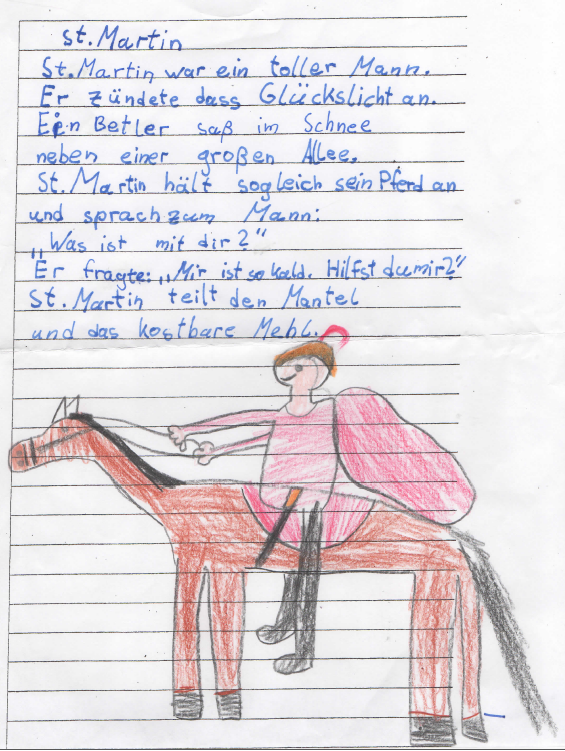 St. Martin
St. Martin war ein toller Mann.
Er zündete dass Glückslicht an.
Ein Betler saß im Schnee
neben einer großen Allee.
St. Martin hält sogleich sein Pferd an
und sprach zum Mann:
„Was ist mit dir?“
Er fragte: „Mir ist so kald. Hilfst du mir?“
St. Martin teilt den Mantel
und das kostbare Mehl.